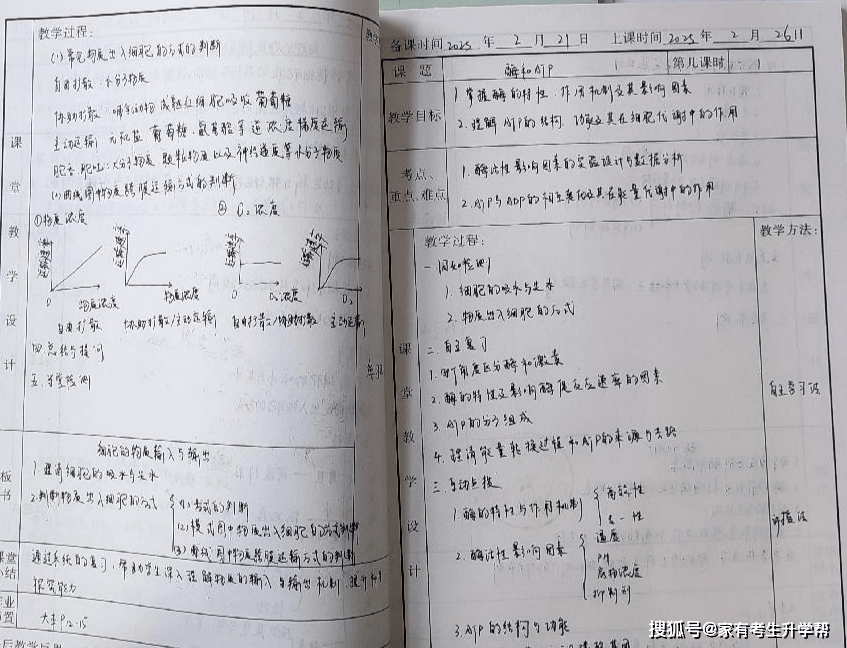 教学过程:
(1) 常见物质出入细胞的方式的判断
自由扩散:小分子物质
协助扩散:哺乳动物成熟红细胞吸收葡萄糖
主动运输:无机盐、葡萄糖、氨基酸等逆浓度梯度运输
胞吞、胞吐:大分子物质、颗粒物质以及神经递质等小分子物质
(2) 曲线图中物质跨膜运输方式的判断
①物质浓度 ② O₂浓度
0 物质浓度 物质浓度 0 O₂浓度 O₂
自由扩散 协助扩散/主动运输 自由扩散/协助扩散 主动运输
四.总结与提问
五.当堂检测
课堂教学设计
板书
细胞的物质输入与输出
1.理清细胞的吸水与失水
2.判断物质出入细胞的方式
(1) 方式的判断
(2) 模式图中物质出入细胞的方式判断
(3) 曲线图中物质跨膜运输方式的判断
课堂小结
通过系统的复习,帮助学生深入理解物质的输入与输出机制,提升科学
探究能力
作业布置
大本P12-15
后教学反思
备课时间 2025 年 2 月 21 日 上课时间 2025 年 2 月 26 日
课题 酶和ATP 第几课时 1
教学目标
1.掌握酶的特性、作用机制及其影响因素
2.理解ATP的结构、功能及其在细胞代谢中的作用
考点、重点、难点
1.酶活性影响因素的实验设计与数据分析
2.ATP与ADP的相互转化及其在能量代谢中的作用
课堂教学设计
教学过程:
教学方法:
一.
1.细胞的吸水与失水
2.物质出入细胞的方式
二.自主复习
1.四个角度区分酶和激素
2.酶的特性及影响酶促反应速率的因素
3.ATP的分子组成
4.理清能量转换过程和ATP的来源与去路
自主学习法
三.互动点拨
1.酶的特性与作用机制
高效性
专一性
2.酶活性影响因素
温度
PH
底物浓度
抑制剂
讲授法
3.ATP的结构与功能
搜狐号@家有考生升学帮